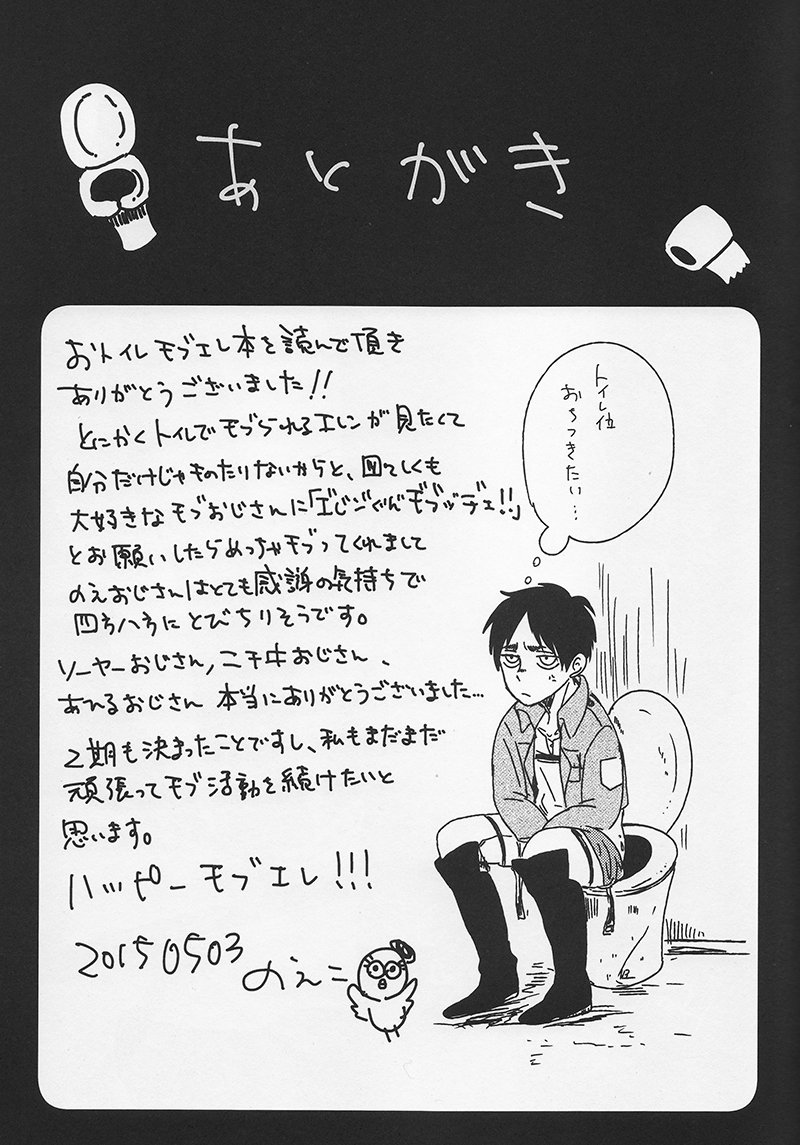 あとがき
おトイレモブエレ本を読んで頂き
ありがとうございました!!
とにかくトイレでモブられるエレンが見たくて
自分だけじゃものたりないからと、図々しくも
大好きなモブおじさんに
とお願いしたらめっちゃモブってくれまして
のえおじさんはとても感謝の気持ちで
四方八方にとびちりそうです。
ソーヤーおじさん,ニチ中おじさん、
あひるおじさん 本当にありがとうございました…
2期も決まったことですし、私もまだまだ
頑張ってモブ活動を続けたいと
思います。
ハッピーモブエレ!!!
20150503 のえこ
トイレ位
おちつきたい…